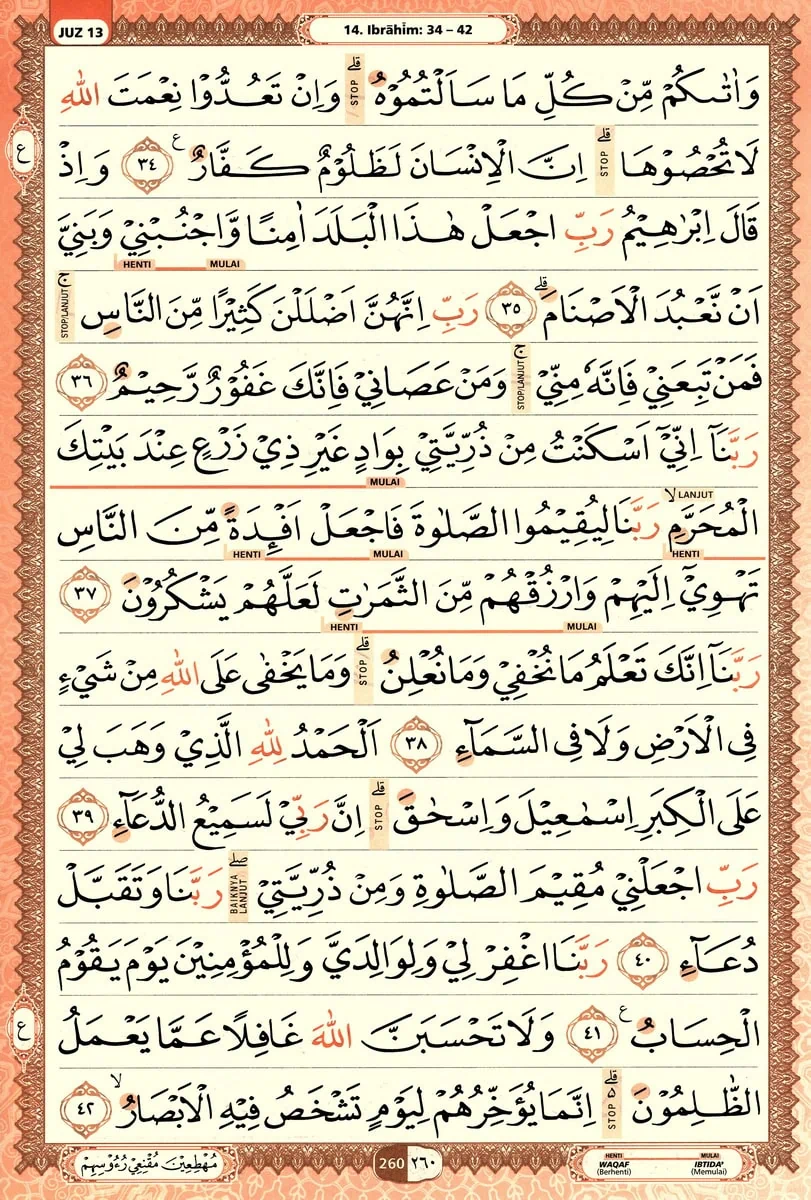 JUZ 13
14. Ibrāhīm: 34 – 42
وَاٰتٰىكُمْ مِّنْ كُلِّ مَا سَاَلْتُمُوْهُۗ STOP وَاِنْ تَعُدُّوْا نِعْمَتَ اللّٰهِ
لَا تُحْصُوْهَاۗ STOP اِنَّ الْاِنْسَانَ لَظَلُوْمٌ كَفَّارٌ ࣖ ٣٤ وَاِذْ
قَالَ اِبْرٰهِيْمُ رَبِّ اجْعَلْ هٰذَا الْبَلَدَ اٰمِنًا وَّاجْنُبْنِيْ وَبَنِيَّ
HENTI MULAI
اَنْ نَّعْبُدَ الْاَصْنَامَۗ ٣٥ رَبِّ اِنَّهُنَّ اَضْلَلْنَ كَثِيْرًا مِّنَ النَّاسِۚ STOP/LANJUT
فَمَنْ تَبِعَنِيْ فَاِنَّهٗ مِنِّيْۚ STOP/LANJUT وَمَنْ عَصَانِيْ فَاِنَّكَ غَفُوْرٌ رَّحِيْمٌ ٣٦
رَبَّنَآ اِنِّيْٓ اَسْكَنْتُ مِنْ ذُرِّيَّتِيْ بِوَادٍ غَيْرِ ذِيْ زَرْعٍ عِنْدَ بَيْتِكَ
MULAI
الْمُحَرَّمِۙ LANJUT رَبَّنَا لِيُقِيْمُوا الصَّلٰوةَ فَاجْعَلْ اَفْـِٕدَةً مِّنَ النَّاسِ
HENTI MULAI HENTI
تَهْوِيْٓ اِلَيْهِمْ وَارْزُقْهُمْ مِّنَ الثَّمَرٰتِ لَعَلَّهُمْ يَشْكُرُوْنَ ٣٧
HENTI MULAI
رَبَّنَآ اِنَّكَ تَعْلَمُ مَا نُخْفِيْ وَمَا نُعْلِنُۗ STOP وَمَا يَخْفٰى عَلَى اللّٰهِ مِنْ شَيْءٍ
فِى الْاَرْضِ وَلَا فِى السَّمَاۤءِ ٣٨ اَلْحَمْدُ لِلّٰهِ الَّذِيْ وَهَبَ لِيْ
عَلَى الْكِبَرِ اِسْمٰعِيْلَ وَاِسْحٰقَۗ STOP اِنَّ رَبِّيْ لَسَمِيْعُ الدُّعَاۤءِ ٣٩
رَبِّ اجْعَلْنِيْ مُقِيْمَ الصَّلٰوةِ وَمِنْ ذُرِّيَّتِيْۖ BAIKNYA LANJUT رَبَّنَا وَتَقَبَّلْ
دُعَاۤءِ ٤٠ رَبَّنَا اغْفِرْ لِيْ وَلِوَالِدَيَّ وَلِلْمُؤْمِنِيْنَ يَوْمَ يَقُوْمُ
الْحِسَابُ ࣖ ٤١ وَلَا تَحْسَبَنَّ اللّٰهَ غَافِلًا عَمَّا يَعْمَلُ
الظّٰلِمُوْنَ ەۗ STOP اِنَّمَا يُؤَخِّرُهُمْ لِيَوْمٍ تَشْخَصُ فِيْهِ الْاَبْصَارُۙ ٤٢
ع
ع
مُهْطِعِيْنَ مُقْنِعِيْ رُءُوْسِهِمْ
260 ٢٦٠
HENTI MULAI
WAQAF IBTIDA'
(Berhenti) (Memulai)